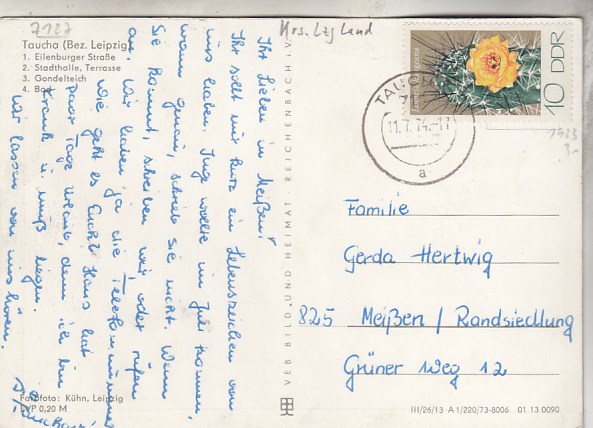 7127
Krs. Lzg Land
Taucha (Bez. Leipzig)
1. Eilenburger Straße
2. Stadthalle, Terrasse
3. Gondelteich
4. Bad
Ihr Lieben in Meißen!
Ihr sollt mit kurz ein Lebenszeichen von
uns haben. Inge wollte im Juli kommen,
wann genau, schrieb sie nicht. Wenn
Sie kommt, schreiben wir oder rufen
an. Wir haben ja die Telefonnummer
Wie geht es Euch? Hans hat
paar Tage Urlaub, denn ich bin
krank u. muß liegen.
Wir lassen von uns hören.
Farbfoto: Kühn, Leipzig
EVP 0,20 M
VEB BILD UND HEIMAT REICHENBACH I. V.
TAUCHA
11.7.74
a
10 DDR
1973
Familie
Gerda Hertwig
825 Meißen / Randsiedlung
Grüner Weg 12
III/26/13 A 1/220/73-8006 01 13 0090